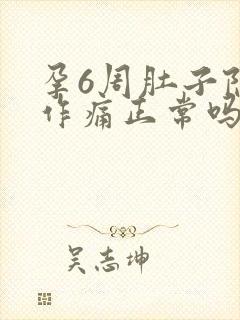 孕6周肚子
作痛正常吗
吴志坤